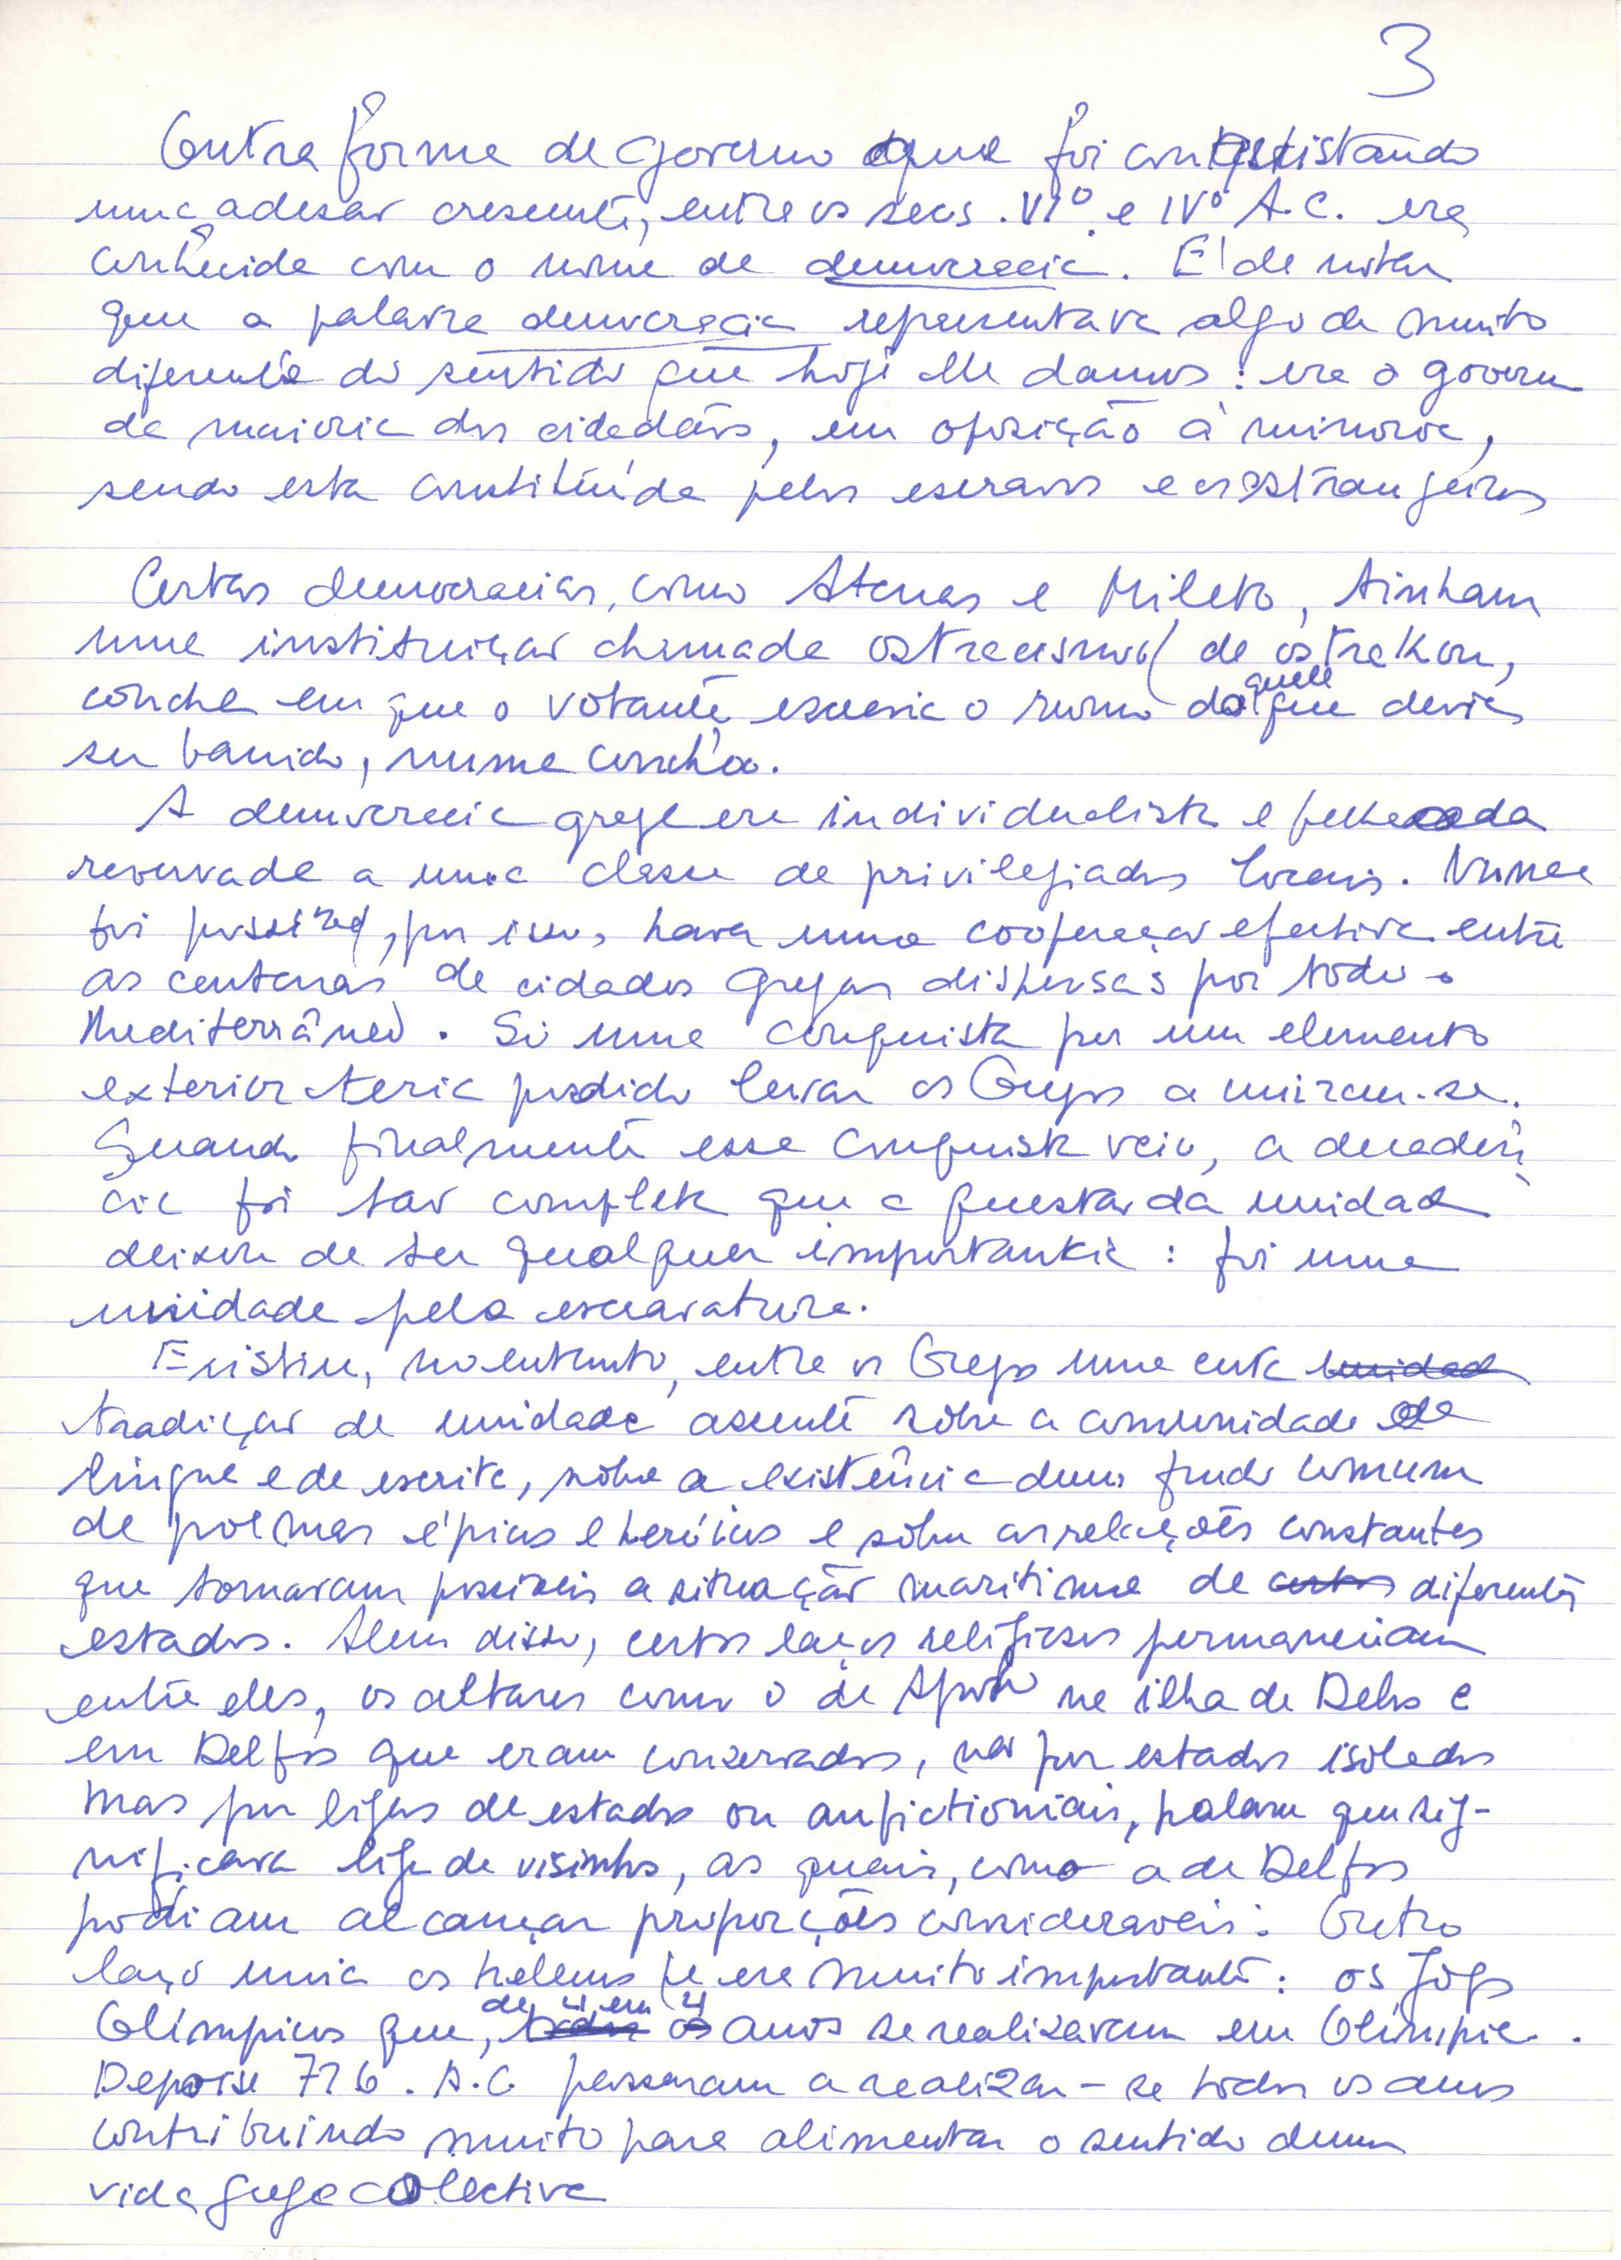 3
Outra forma de governo que foi conquistando
uma adesão crescente, entre os secs. VIº e IVº A.C. era
conhecida com o nome de democracia. É de notar
que a palavra democracia representava algo de muito
diferente do sentido que hoje lhe damos: era o governo
da maioria dos cidadãos, em oposição à minoria,
sendo esta constituída pelos escravos e os estrangeiros
Certas democracias, como Atenas e Mileto, tinham
uma instituição chamada ostracismo (de ostrakon,
concha em que o votante escrevia o nome daquele que devia
ser banido, numa concha.
A democracia grega era individualista e fechada
reservada a uma classe de privilegiados locais. Nunca
foi possível, por isso, haver uma cooperação efectiva entre
as centenas de cidades gregas dispersas por todo o
Mediterrâneo. Só uma conquista por um elemento
exterior teria podido levar os Gregos a unirem-se.
Quando finalmente essa conquista veio, a decadên-
cia foi tão completa que a questão da unidade
deixou de ter qualquer importankia: foi uma
unidade pela escravatura.
Existiu, no entanto, entre os Gregos uma certa unidade
tradição de unidade assente sôbre a comunidade de
língua e de escrita, sôbre a existência dum fundo comum
de poemas épicos e heróicos e sôbre as relações constantes
que tornaram possiveis a situação maritima de certos diferentes
estados. Alem disso, certos laços religiosos permaneciam
entre eles, os altares como o de Apolo na ilha de Delos e
em Delfos que eram conservados, não por estados isolados
mas por ligas de estados ou anfictioniais, palavra que sig-
nificava liga de visinhos, as quais, como a de Delfos
podiam alcançar proporções consideraveis. Outro
laço unia os helenos que era muito importante: os Jogos
Olímpicos que, de 4 em 4 anos se realizavam em Olímpia.
Depois de 776. A.C passaram a realizar-se todos os anos
contribuindo muito para alimentar o sentido duma
vida grega colectiva